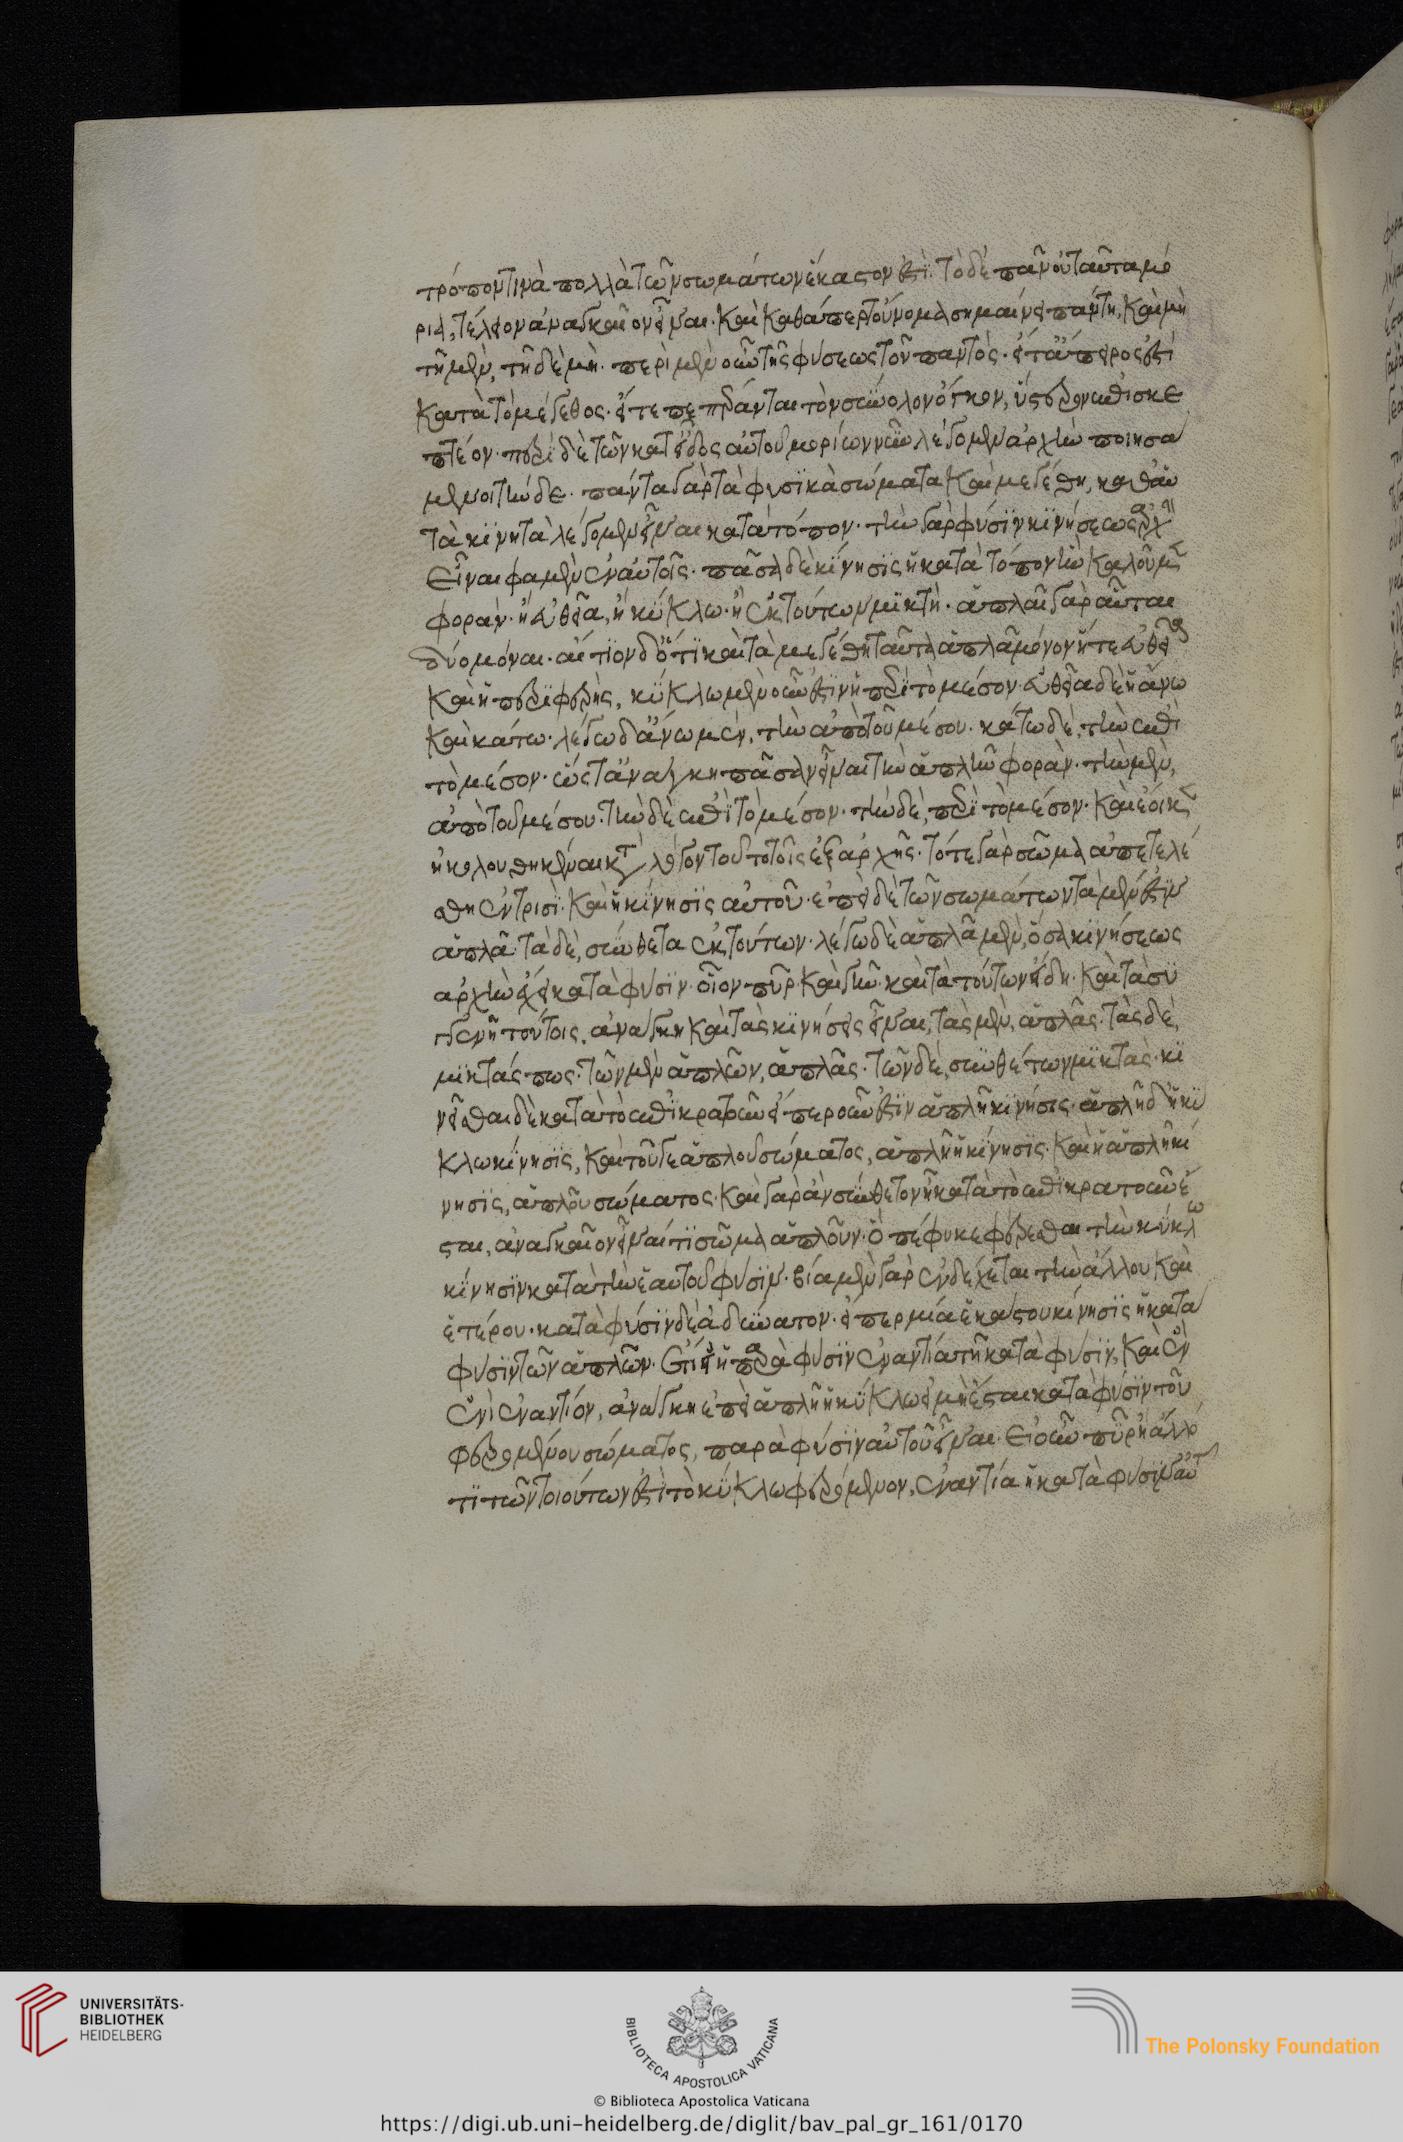 τρόπον τινὰ πολλὰ τῶν σωμάτων ἕκαστον ἐστὶ. τὸ δὲ πᾶν οὗ ταῦτα μό
ρια, τέλειον ἀναγκαῖον εἶναι. καὶ καθάπερ τοὔνομα σημαίνει πάντῃ, καὶ μὴ
τῇ μὲν, τῇ δὲ μὴ. περὶ μὲν οὖν τῆς φύσεως τοῦ παντὸς. εἴτ' ἄπειρός ἐστι
κατὰ τὸ μέγεθος. εἴτε πεπέρανται τὸν σύνολον ὄγκον, ὕστερον ἐπισκε
πτέον. περὶ δὲ τῶν κατ' εἶδος αὐτοῦ μορίων νῦν λέγομεν ἀρχὴν ποιησά
μενοι τήνδε. πάντα γὰρ τὰ φυσικὰ σώματα καὶ μεγέθη, καθ' αὑ
τὰ κινητὰ λέγομεν εἶναι κατὰ τόπον. τὴν γὰρ φύσιν κινήσεως ἀρχὴν
εἶναι φαμὲν ἐν αὐτοῖς. πᾶσα δὲ κίνησις ἡ κατὰ τόπον ἣν καλοῦμεν
φορὰν. ἢ εὐθεῖα, ἢ κύκλω. ἢ ἐκ τούτων μικτὴ. ἁπλαῖ γὰρ αὗται
δύο μόναι. αἴτιον δ' ὅτι καὶ τὰ μεγέθη ταῦτα ἁπλᾶ μόνον ἥ τε εὐθεῖα
καὶ ἡ περιφερὴς, κύκλω μὲν οὖν ἐστιν ἡ περὶ τὸ μέσον. εὐθεῖα δὲ ἡ ἄνω
καὶ κάτω. λέγω δ' ἄνω μὲν, τὴν ἀπὸ τοῦ μέσου. κάτω δὲ, τὴν ἐπὶ
τὸ μέσον. ὥστ' ἀνάγκη πᾶσαν εἶναι τὴν ἁπλῆν φορὰν. τὴν μὲν,
ἀπὸ τοῦ μέσου. τὴν δὲ ἐπὶ τὸ μέσον. τὴν δὲ, περὶ τὸ μέσον. καὶ ἔοικεν
ἠκολουθηκέναι κατὰ λόγον τοῦτο τοῖς ἐξ ἀρχῆς. τό τε γὰρ σῶμα ἀπετελέ
σθη ἐν τρισὶ. καὶ ἡ κίνησις αὐτοῦ. ἐπεὶ δὲ τῶν σωμάτων τὰ μέν ἐστιν
ἁπλᾶ. τὰ δὲ, σύνθετα ἐκ τούτων. λέγω δὲ ἁπλᾶ μὲν, ὅσα κινήσεως
ἀρχὴν ἔχει κατὰ φύσιν. οἷον πῦρ. καὶ γῆν. καὶ τὰ τούτων εἴδη. καὶ τὰ συ
γγενῆ τούτοις, ἀνάγκη καὶ τὰς κινήσεις εἶναι, τὰς μὲν, ἁπλᾶς. τὰς δὲ,
μικτάς πως. τῶν μὲν ἁπλῶν, ἁπλᾶς. τῶν δὲ, συνθέτων μικτὰς. κι
νεῖσθαι δὲ κατὰ τὸ ἐπικρατοῦν εἴπερ οὖν ἐστιν ἁπλῆ κίνησις. ἁπλῆ δ' ἡ κύ
κλω κίνησις, καὶ τοῦ γε ἁπλοῦ σώματος, ἁπλῆ ἡ κίνησις. καὶ ἡ ἁπλῆ κί
νησις, ἁπλοῦ σώματος. καὶ γὰρ ἂν σύνθετον ἦ κατὰ τὸ ἐπικρατοῦν ἔ
σται, ἀναγκαῖον εἶναί τι σῶμα ἁπλοῦν. ὃ πέφυκε φέρεσθαι τὴν κύκλω
κίνησιν κατὰ τὴν ἑαυτοῦ φύσιν. βία μὲν γὰρ ἐνδέχεται τὴν ἄλλου καὶ
ἑτέρου. κατὰ φύσιν δὲ ἀδύνατον. εἴπερ μία ἑκάστου κίνησις ἡ κατὰ
φύσιν τῶν ἁπλῶν. ἔτι εἰ ἡ παρὰ φύσιν ἐναντία τῆ κατὰ φύσιν, καὶ ἓν
ἑνὶ ἐναντίον, ἀνάγκη ἐπεὶ ἁπλῆ ἡ κύκλω εἰ μὴ ἔσται κατὰ φύσιν τοῦ
φερομένου σώματος, παρὰ φύσιν αὐτοῦ εἶναι. εἰ οὖν πῦρ ἢ ἄλλό
τι τῶν τοιούτων ἐστὶ τὸ κύκλω φερόμενον, ἐναντία ἡ κατὰ φύσιν αὐτοῦ
UNIVERSITÄTS-
BIBLIOTHEK
HEIDELBERG
BIBLIOTECA APOSTOLICA VATICANA
© Biblioteca Apostolica Vaticana
The Polonsky Foundation
https://digi.ub.uni-heidelberg.de/diglit/bav_pal_gr_161/0170